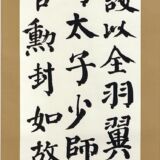 護以全羽翼
可太子少師
官勳封如故